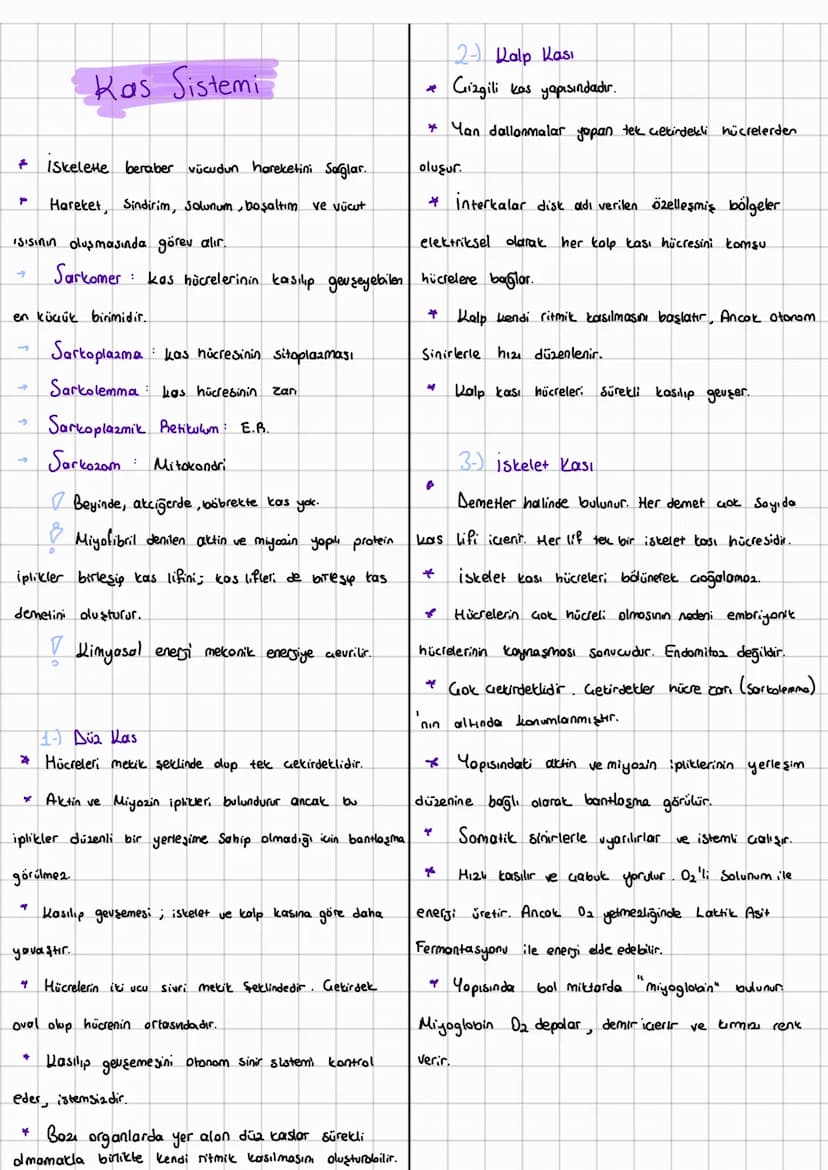 Kas Sistemi
* İskeletle beraber vücudun hareketini sağlar.
* Hareket, Sindirim, Solunum, boşaltım ve vücut
ısısının oluşmasında görev alır.
→ Sarkomer : kas hücrelerinin kasılıp gevşeyebilen
en küçük birimidir.
→ Sarkoplazma : kas hücresinin sitoplazması
→ Sarkolemma : kas hücresinin zarı
→ Sarkoplazmik Retikulum : E.R.
→ Sarkozom : Mitokondri
! Beyinde, akciğerde, böbrekte kas yok.
! Miyofibril denilen aktin ve miyozin yapılı protein
iplikler birleşip kas lifini; kas lifleri de birleşip kas
demetini oluşturur.
! Kimyasal enerji mekanik enerjiye çevrilir.
1-) Düz Kas
* Hücreleri mekik şeklinde olup tek çekirdeklidir.
* Aktin ve Miyozin iplikleri bulundurur ancak bu
iplikler düzenli bir yerleşime sahip olmadığı için bantlaşma
görülmez.
* Kasılıp gevşemesi ; iskelet ve kalp kasına göre daha
yavaştır.
* Hücrelerin iki ucu sivri mekik şeklindedir. Çekirdek
oval olup hücrenin ortasındadır.
* Kasılıp gevşemesini otonom sinir sistemi kontrol
eder, istemsizdir.
* Bazı organlarda yer alan düz kaslar sürekli
olmamakla birlikte kendi ritmik kasılmasını oluşturabilir.
2-) Kalp Kası
* Çizgili kas yapısındadır.
* Yan dallanmalar yapan tek çekirdekli hücrelerden
oluşur.
* İnterkalar disk adı verilen özelleşmiş bölgeler
elektriksel olarak her kalp kası hücresini komşu
hücrelere bağlar.
* Kalp kendi ritmik kasılmasını başlatır, Ancak otonom
sinirlerle hızı düzenlenir.
* Kalp kası hücreleri sürekli kasılıp gevşer.
3-) İskelet Kası
* Demetler halinde bulunur. Her demet çok sayıda
kas lifi içerir. Her lif tek bir iskelet kası hücresidir.
* İskelet kası hücreleri bölünerek çoğalamaz.
* Hücrelerin çok hücreli olmasının nedeni embriyonik
hücrelerinin kaynaşması sonucudur. Endomitoz değildir.
* Çok çekirdeklidir. Çekirdekler hücre zarı (sarkolemma)
'nın altında konumlanmıştır.
* Yapısındaki aktin ve miyozin ipliklerinin yerleşim
düzenine bağlı olarak bantlaşma görülür.
* Somatik sinirlerle uyarılırlar ve istemli çalışır.
* Hızlı kasılır ve çabuk yorulur. O2'li Solunum ile
enerji üretir. Ancak O2 yetmezliğinde Laktik Asit
Fermantasyonu ile enerji elde edebilir.
* Yapısında bol miktarda "miyoglobin" bulunur.
Miyoglobin O2 depolar, demir içerir ve kırmızı renk
verir.